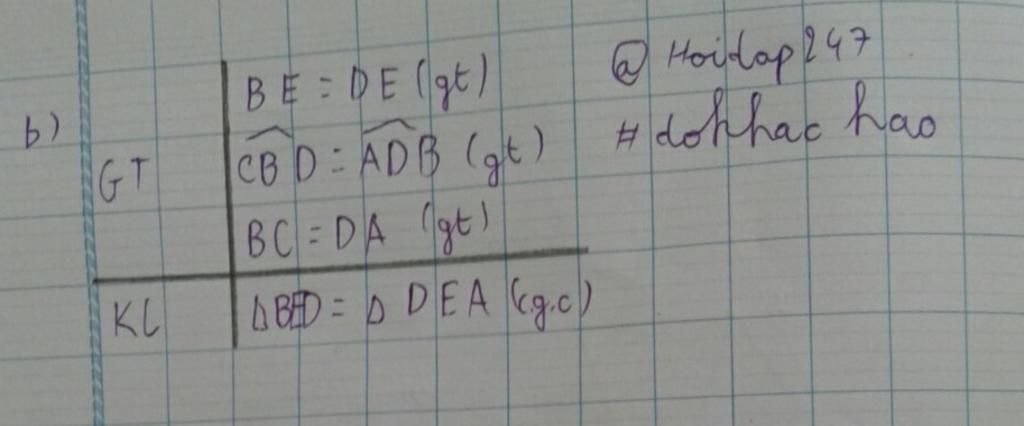 b)
GT
BE = DE (gt)
\widehat{CBD} = \widehat{ADB} (gt)
BC = DA (gt)
KL
ΔBED = Δ DEA (c.g.c)
@ Hoidap247
# dohhac hao